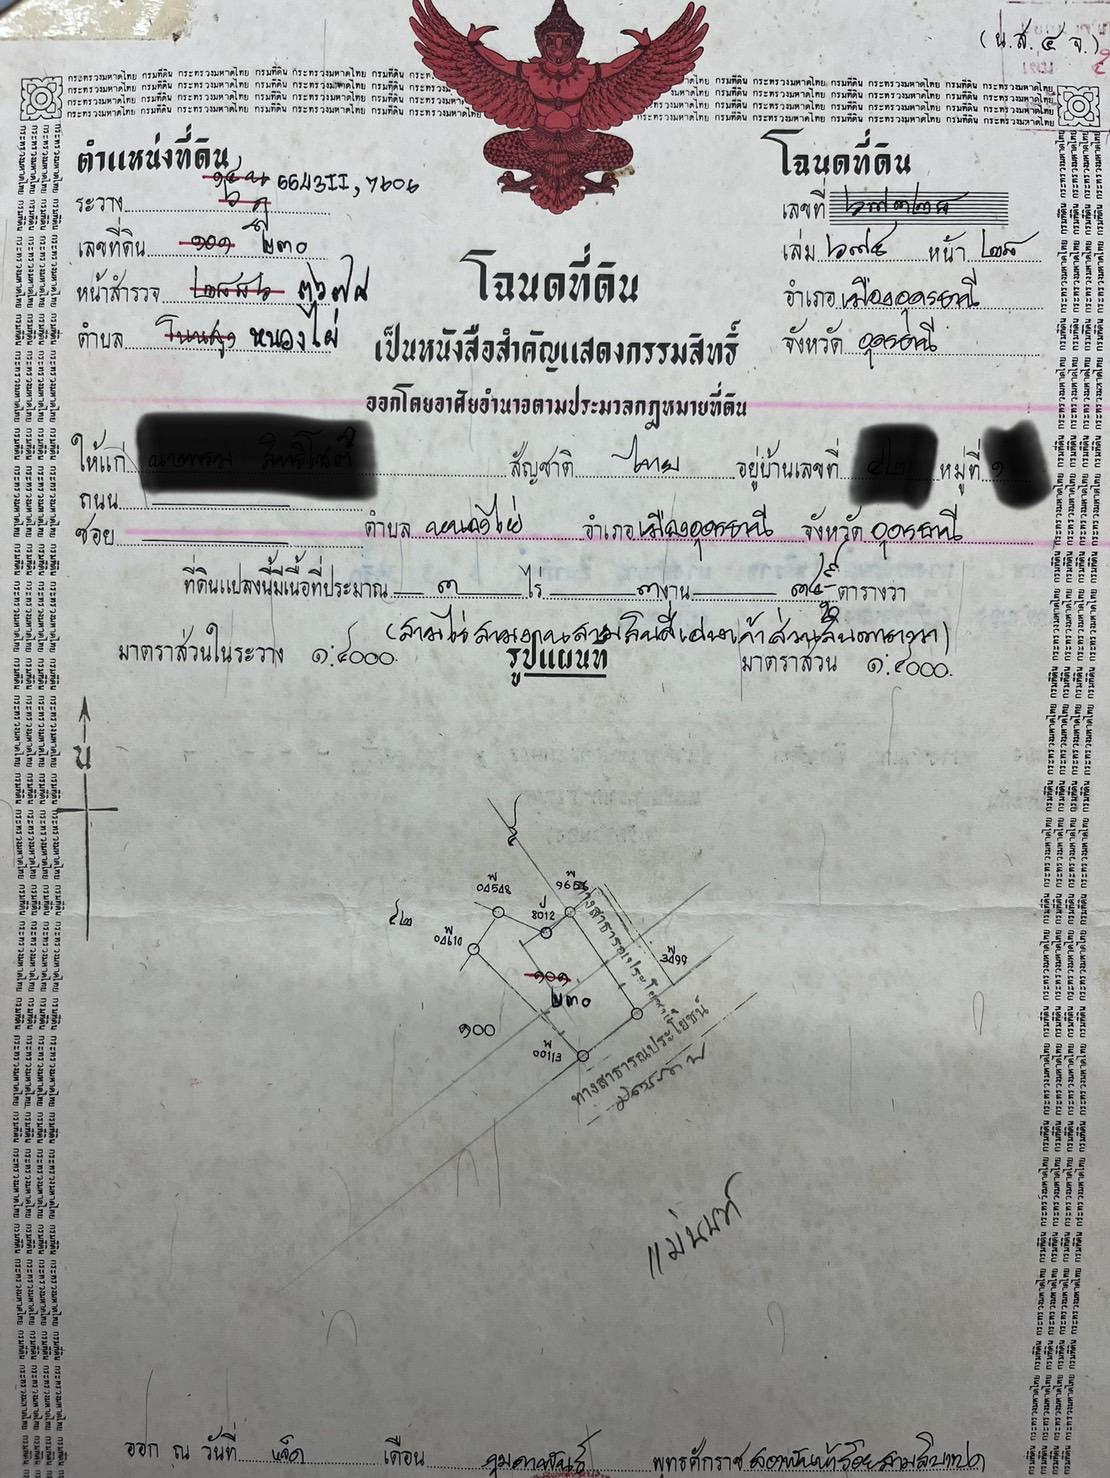 (น.ส. ๔ จ.)
ตำแหน่งที่ดิน
ระวาง 5543II, 7606
เลขที่ดิน ๑๐๑ ๒๓๐
หน้าสำรวจ ๓๖๗๙
ตำบล โนนสูง หนองไผ่
โฉนดที่ดิน
เลขที่
เล่ม หน้า
อำเภอ เมืองอุดรธานี
จังหวัด อุดรธานี
โฉนดที่ดิน
เป็นหนังสือสำคัญแสดงกรรมสิทธิ์
ออกโดยอาศัยอำนาจตามประมวลกฎหมายที่ดิน
ให้แก่ สัญชาติ ไทย อยู่บ้านเลขที่ หมู่ที่
ถนน
ซอย ตำบล หนองไผ่ อำเภอ เมืองอุดรธานี จังหวัด อุดรธานี
ที่ดินแปลงนี้มีเนื้อที่ประมาณ ๓ ไร่ ๓ งาน ตารางวา
(สามไร่สามงานสามสิบสี่เศษเก้าส่วนสิบตารางวา)
มาตราส่วนในระวาง ๑:๔๐๐๐ รูปแผนที่ มาตราส่วน ๑:๔๐๐๐
น
พ 04548
พ 9656
ป 8012
๕๒
พ 04610
พ 3499
๑๐๑
๒๓๐
๑๐๐
พ 00113
ทางสาธารณประโยชน์
ทางสาธารณประโยชน์
ออก ณ วันที่ เจ็ด เดือน กุมภาพันธ์ พุทธศักราช สองพันห้าร้อยสามสิบแปด